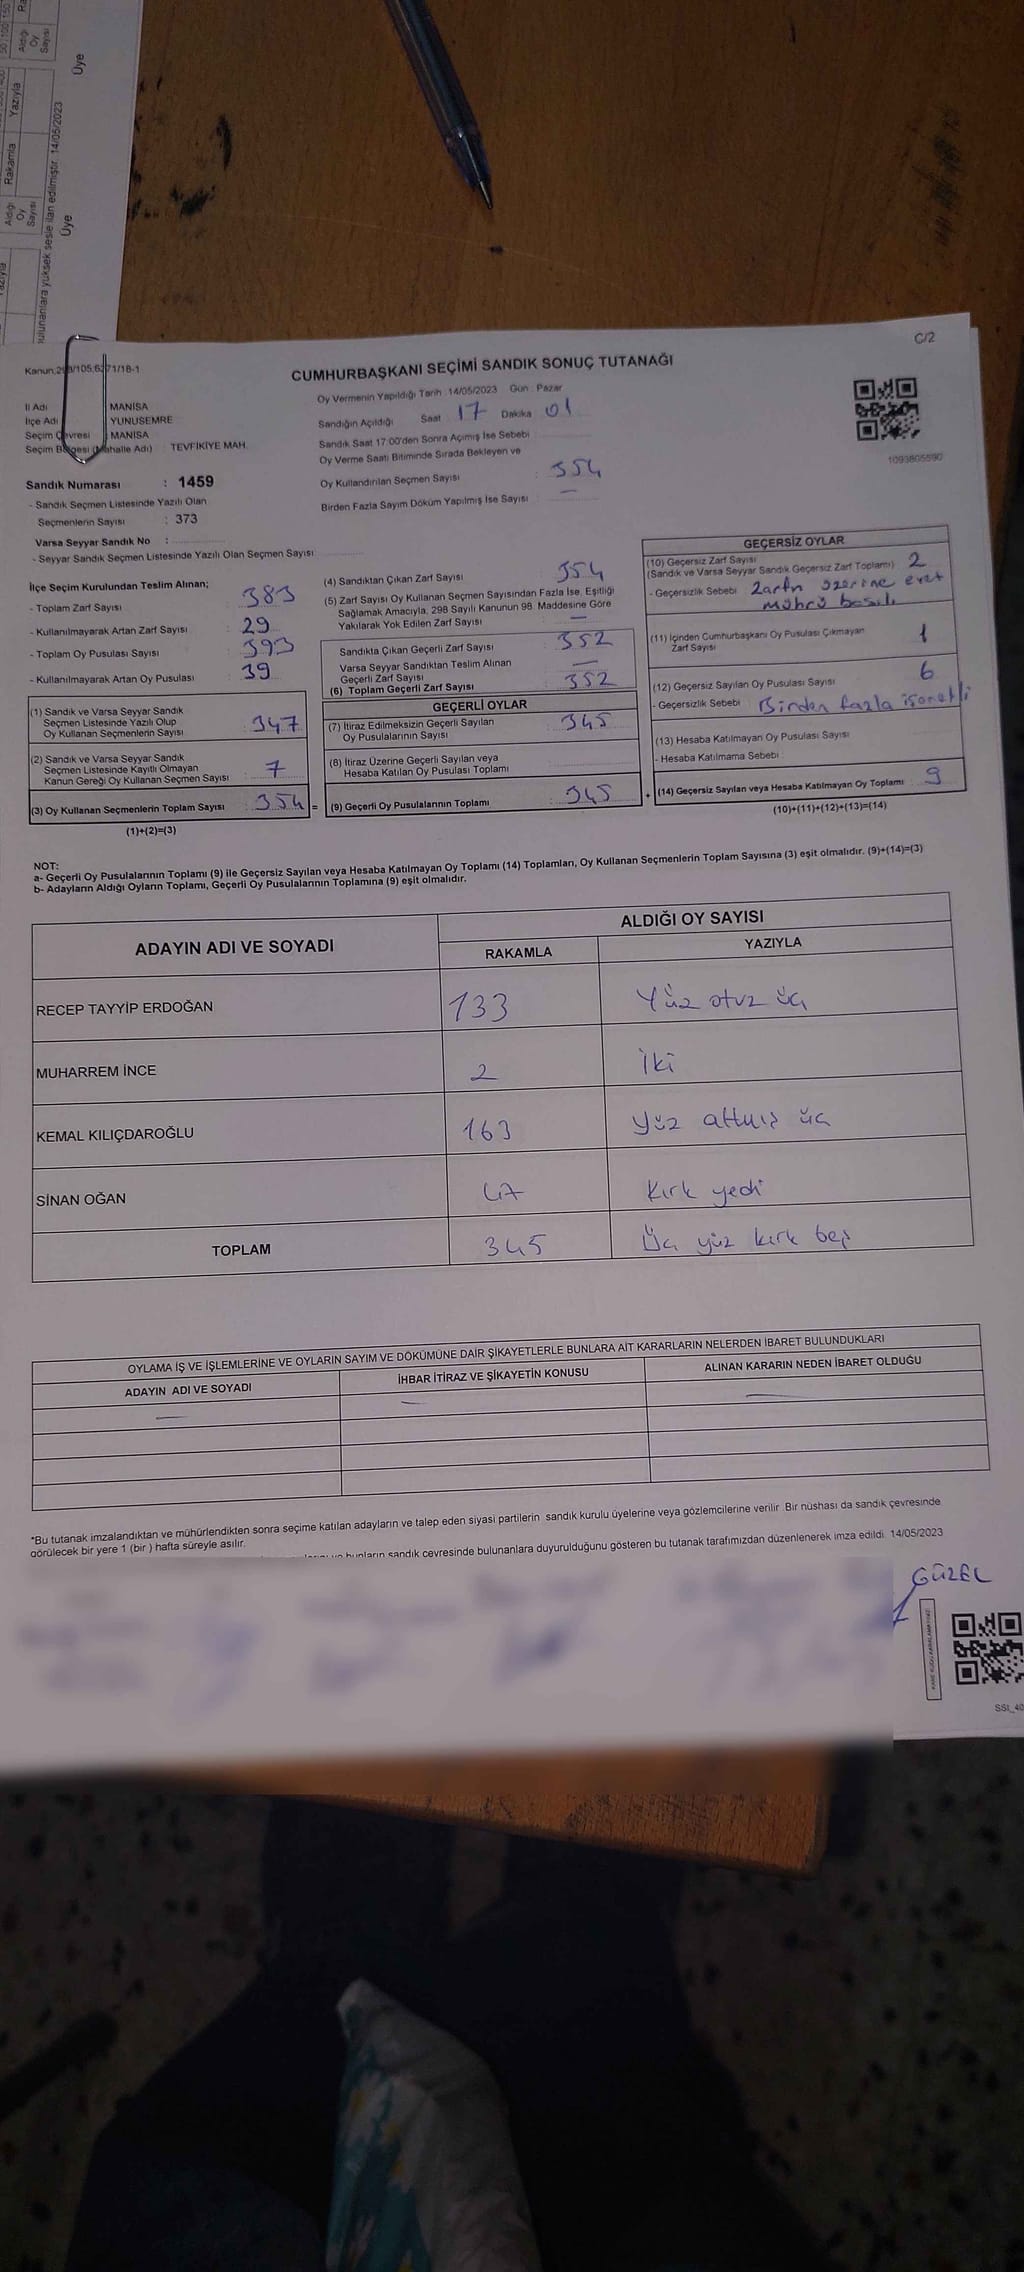 50 100 150
Aldığı
Oy
Sayısı
Rakamla
Yazıyla
Aldığı
Oy
Sayısı
yüksek sesle ilan edilmiştir. 14/05/2023
Üye
Üye
C/2
CUMHURBAŞKANI SEÇİMİ SANDIK SONUÇ TUTANAĞI
İl Adı MANİSA
İlçe Adı YUNUSEMRE
Seçim Çevresi MANİSA
Seçim Bölgesi (Mahalle Adı) : TEVFİKİYE MAH.
Sandık Numarası : 1459
- Sandık Seçmen Listesinde Yazılı Olan
Seçmenlerin Sayısı : 373
Varsa Seyyar Sandık No :
- Seyyar Sandık Seçmen Listesinde Yazılı Olan Seçmen Sayısı :
Oy Vermenin Yapıldığı Tarih : 14/05/2023 Gün : Pazar
Sandığın Açıldığı Saat 17 Dakika 01
Sandık Saat 17:00'den Sonra Açımış İse Sebebi :
Oy Verme Saati Bitiminde Sırada Bekleyen ve
Oy Kullandırılan Seçmen Sayısı : 354
Birden Fazla Sayım Döküm Yapılmış İse Sayısı : —
1093805590
İlçe Seçim Kurulundan Teslim Alınan;
- Toplam Zarf Sayısı : 383
- Kullanılmayarak Artan Zarf Sayısı : 29
- Toplam Oy Pusulası Sayısı : 393
- Kullanılmayarak Artan Oy Pusulası : 39
(1) Sandık ve Varsa Seyyar Sandık
Seçmen Listesinde Yazılı Olup
Oy Kullanan Seçmenlerin Sayısı : 347
(2) Sandık ve Varsa Seyyar Sandık
Seçmen Listesinde Kayıtlı Olmayan
Kanun Gereği Oy Kullanan Seçmen Sayısı : 7
(3) Oy Kullanan Seçmenlerin Toplam Sayısı : 354 =
(1)+(2)=(3)
(4) Sandıktan Çıkan Zarf Sayısı : 354
(5) Zarf Sayısı Oy Kullanan Seçmen Sayısından Fazla İse, Eşitliği
Sağlamak Amacıyla, 298 Sayılı Kanunun 98. Maddesine Göre
Yakılarak Yok Edilen Zarf Sayısı : —
Sandıkta Çıkan Geçerli Zarf Sayısı : 352
Varsa Seyyar Sandıktan Teslim Alınan
Geçerli Zarf Sayısı : —
(6) Toplam Geçerli Zarf Sayısı : 352
GEÇERLİ OYLAR
(7) İtiraz Edilmeksizin Geçerli Sayılan
Oy Pusulalarının Sayısı : 345
(8) İtiraz Üzerine Geçerli Sayılan veya
Hesaba Katılan Oy Pusulası Toplamı :
(9) Geçerli Oy Pusulalarının Toplamı : 345 +
GEÇERSİZ OYLAR
(10) Geçersiz Zarf Sayısı
(Sandık ve Varsa Seyyar Sandık Geçersiz Zarf Toplamı) : 2
- Geçersizlik Sebebi : Zarfın üzerine evet
mührü basılı
(11) İçinden Cumhurbaşkanı Oy Pusulası Çıkmayan
Zarf Sayısı : 1
(12) Geçersiz Sayılan Oy Pusulası Sayısı : 6
- Geçersizlik Sebebi : Birden fazla işaretli
(13) Hesaba Katılmayan Oy Pusulası Sayısı :
- Hesaba Katılmama Sebebi :
(14) Geçersiz Sayılan veya Hesaba Katılmayan Oy Toplamı : 9
(10)+(11)+(12)+(13)=(14)
NOT:
a- Geçerli Oy Pusulalarının Toplamı (9) ile Geçersiz Sayılan veya Hesaba Katılmayan Oy Toplamı (14) Toplamları, Oy Kullanan Seçmenlerin Toplam Sayısına (3) eşit olmalıdır. (9)+(14)=(3)
b- Adayların Aldığı Oyların Toplamı, Geçerli Oy Pusulalarının Toplamına (9) eşit olmalıdır.
ADAYIN ADI VE SOYADI ALDIĞI OY SAYISI
RAKAMLA YAZIYLA
RECEP TAYYİP ERDOĞAN 133 Yüz otuz üç
MUHARREM İNCE 2 İki
KEMAL KILIÇDAROĞLU 163 yüz altmış üç
SİNAN OĞAN 47 Kırk yedi
TOPLAM 345 Üç yüz kırk beş
OYLAMA İŞ VE İŞLEMLERİNE VE OYLARIN SAYIM VE DÖKÜMÜNE DAİR ŞİKAYETLERLE BUNLARA AİT KARARLARIN NELERDEN İBARET BULUNDUKLARI
ADAYIN ADI VE SOYADI İHBAR İTİRAZ VE ŞİKAYETİN KONUSU ALINAN KARARIN NEDEN İBARET OLDUĞU
— — —
*Bu tutanak imzalandıktan ve mühürlendikten sonra seçime katılan adayların ve talep eden siyasi partilerin sandık kurulu üyelerine veya gözlemcilerine verilir. Bir nüshası da sandık çevresinde
görülecek bir yere 1 (bir ) hafta süreyle asılır.
bunların sandık çevresinde bulunanlara duyurulduğunu gösteren bu tutanak tarafımızdan düzenlenerek imza edildi. 14/05/2023
GÜZEL
SSI_40